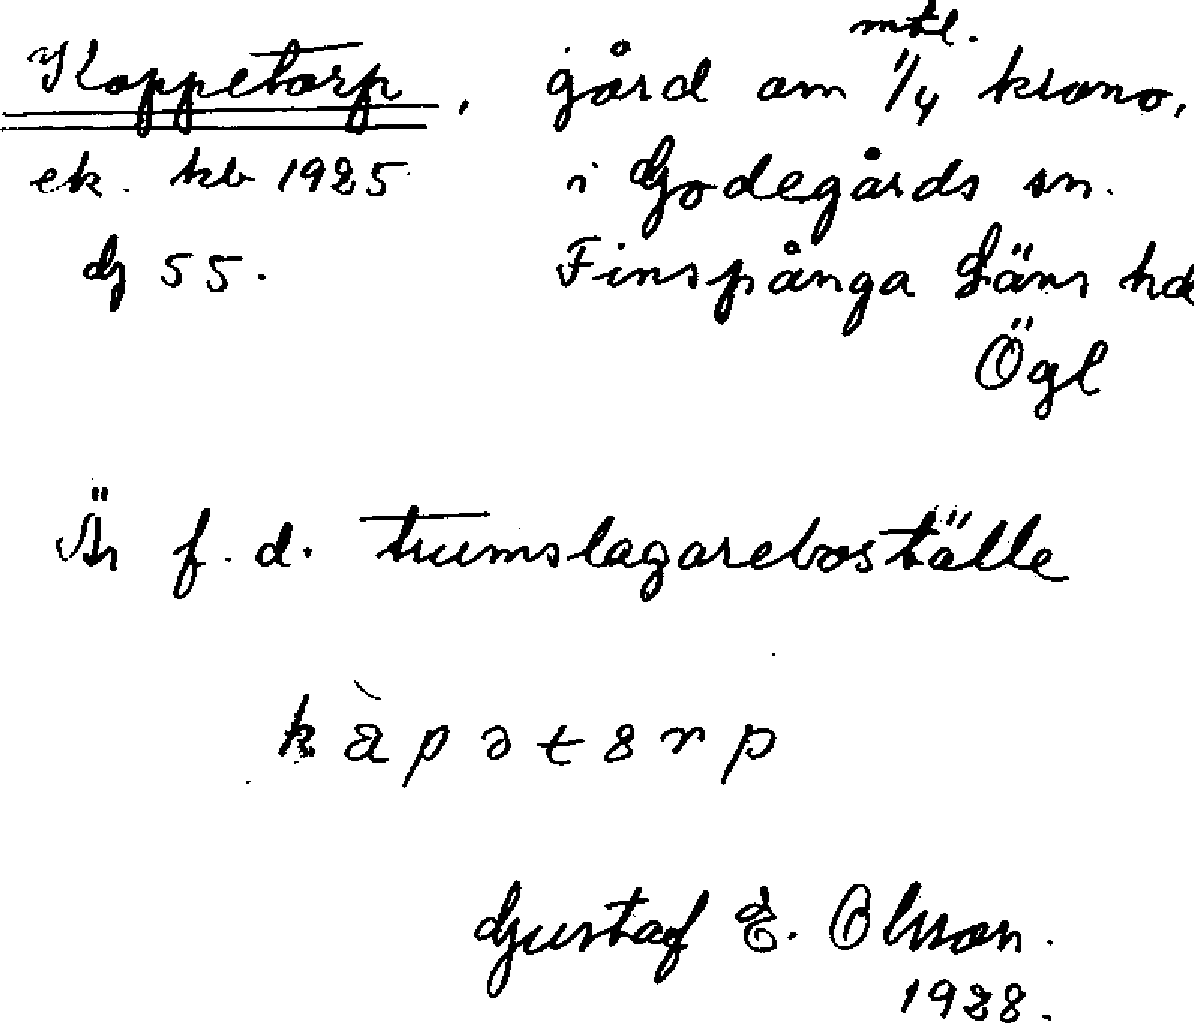 Koppetorp, gård om 1/4 mtl. krono,
ek. kb 1925 i Godegårds sn.
dj 55. Finspånga Läns hd
Ögl
Är f. d. trumslagareboställe
kàpətɵrp
Gustaf E. Olsson.
1928.